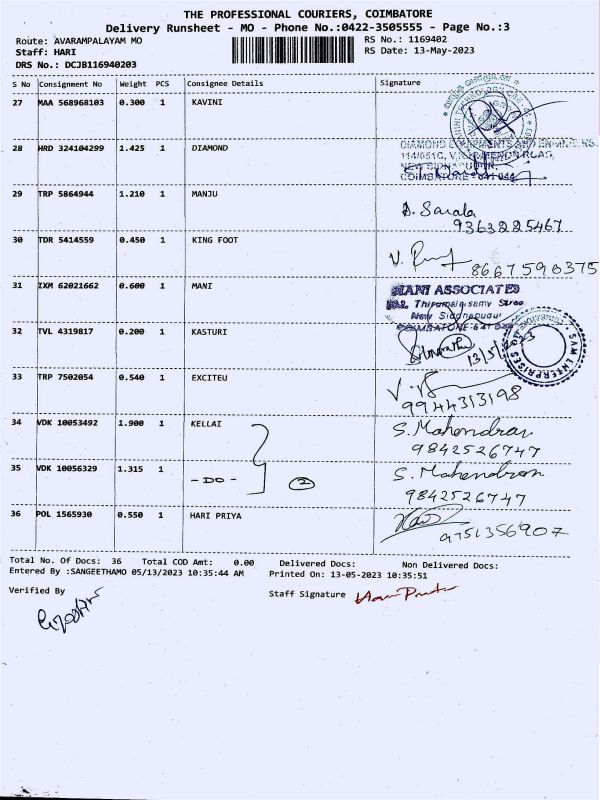 THE PROFESSIONAL COURIERS, COIMBATORE
Delivery Runsheet - MO - Phone No.:0422-3505555 - Page No.:3
Route: AVARAMPALAYAM MO RS No.: 1169402
Staff: HARI RS Date: 13-May-2023
DRS No.: DCJB116940203
S No Consignment No Weight PCS Consignee Details Signature
27 MAA 568968103 0.300 1 KAVINI
28 HRD 324104299 1.425 1 DIAMOND
COIMBATORE - 641 044
29 TRP 5864944 1.210 1 MANJU
S. Sarala
9363225467
30 TDR 5414559 0.450 1 KING FOOT
8667590375
31 IXM 62021662 0.600 1 MANI
MANI ASSOCIATES
New Siddhapudur
COIMBATORE 641 044
32 TVL 4319817 0.200 1 KASTURI
13/5/2023
SAM ENTERPRISES
33 TRP 7502054 0.540 1 EXCITEU
9944313198
34 VDK 10053492 1.900 1 KELLAI
S. Mahendran
9842526747
35 VDK 10056329 1.315 1 - DO - 2
S. Mahendran
9842526747
36 POL 1565930 0.550 1 HARI PRIYA
9751356907
Total No. Of Docs: 36 Total COD Amt: 0.00 Delivered Docs: Non Delivered Docs:
Entered By :SANGEETHAMO 05/13/2023 10:35:44 AM Printed On: 13-05-2023 10:35:51
Verified By Staff Signature